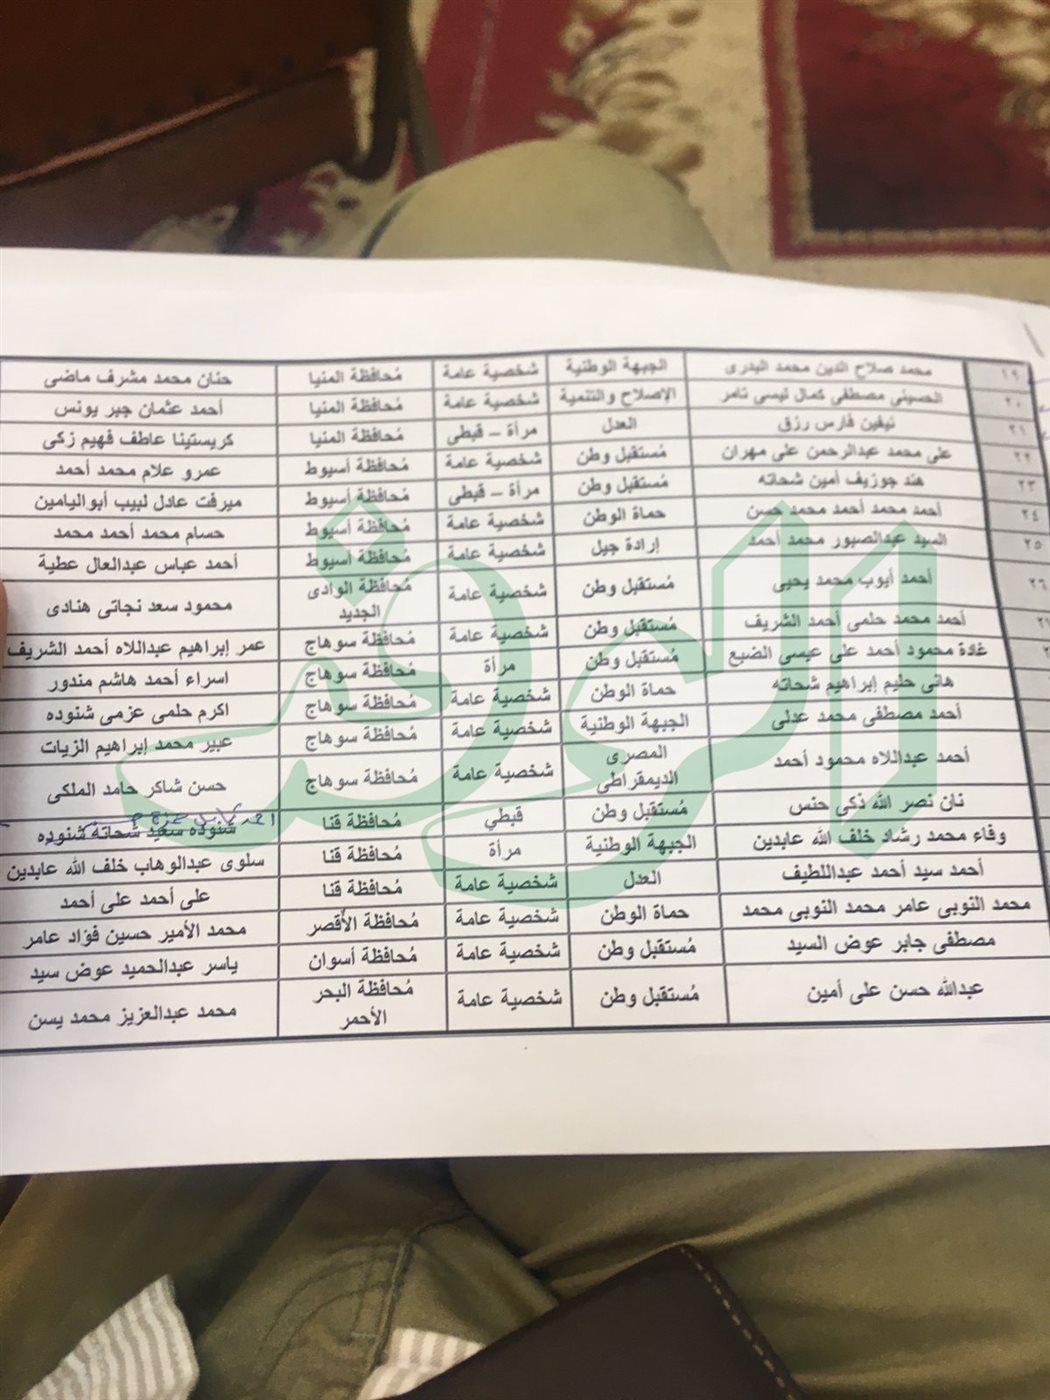 ١٩ محمد صلاح الدين محمد البدرى الجبهة الوطنية شخصية عامة مُحافظة المنيا حنان محمد مشرف ماضى
٢٠ الحسينى مصطفى كمال ليسى تامر الإصلاح والتنمية شخصية عامة مُحافظة المنيا أحمد عثمان جبر يونس
٢١ نيفين فارس رزق العدل مرأة – قبطى مُحافظة المنيا كريستينا عاطف فهيم زكى
٢٢ على محمد عبدالرحمن على مهران مُستقبل وطن شخصية عامة مُحافظة أسيوط عمرو علام محمد أحمد
٢٣ هند جوزيف أمين شحاته مُستقبل وطن مرأة – قبطى مُحافظة أسيوط ميرفت عادل لبيب أبواليامين
٢٤ أحمد محمد أحمد محمد حسن حماة الوطن شخصية عامة مُحافظة أسيوط حسام محمد أحمد محمد
٢٥ السيد عبدالصبور محمد أحمد إرادة جيل شخصية عامة مُحافظة أسيوط أحمد عباس عبدالعال عطية
٢٦ أحمد أيوب محمد يحيى مُستقبل وطن شخصية عامة مُحافظة الوادى الجديد محمود سعد نجاتى هنادى
أحمد محمد حلمى أحمد الشريف مُستقبل وطن شخصية عامة مُحافظة سوهاج عمر إبراهيم عبداللاه أحمد الشريف
غادة محمود أحمد على عيسى الضبع مُستقبل وطن مرأة مُحافظة سوهاج اسراء أحمد هاشم مندور
هانى حليم إبراهيم شحاته حماة الوطن شخصية عامة مُحافظة سوهاج اكرم حلمى عزمى شنوده
أحمد مصطفى محمد عدلى الجبهة الوطنية شخصية عامة مُحافظة سوهاج عبير محمد إبراهيم الزيات
أحمد عبداللاه محمود أحمد المصرى الديمقراطى شخصية عامة مُحافظة سوهاج حسن شاكر حامد الملكى
نان نصر الله ذكى حنس مُستقبل وطن قبطي مُحافظة قنا شنوده سعيد شحاته شنوده
وفاء محمد رشاد خلف الله عابدين الجبهة الوطنية مرأة مُحافظة قنا سلوى عبدالوهاب خلف الله عابدين
أحمد سيد أحمد عبداللطيف العدل شخصية عامة مُحافظة قنا على أحمد على أحمد
محمد النوبى عامر محمد النوبى محمد حماة الوطن شخصية عامة مُحافظة الأقصر محمد الأمير حسين فؤاد عامر
مصطفى جابر عوض السيد مُستقبل وطن شخصية عامة مُحافظة أسوان ياسر عبدالحميد عوض سيد
عبدالله حسن على أمين مُستقبل وطن شخصية عامة مُحافظة البحر الأحمر محمد عبدالعزيز محمد يسن
الوفد